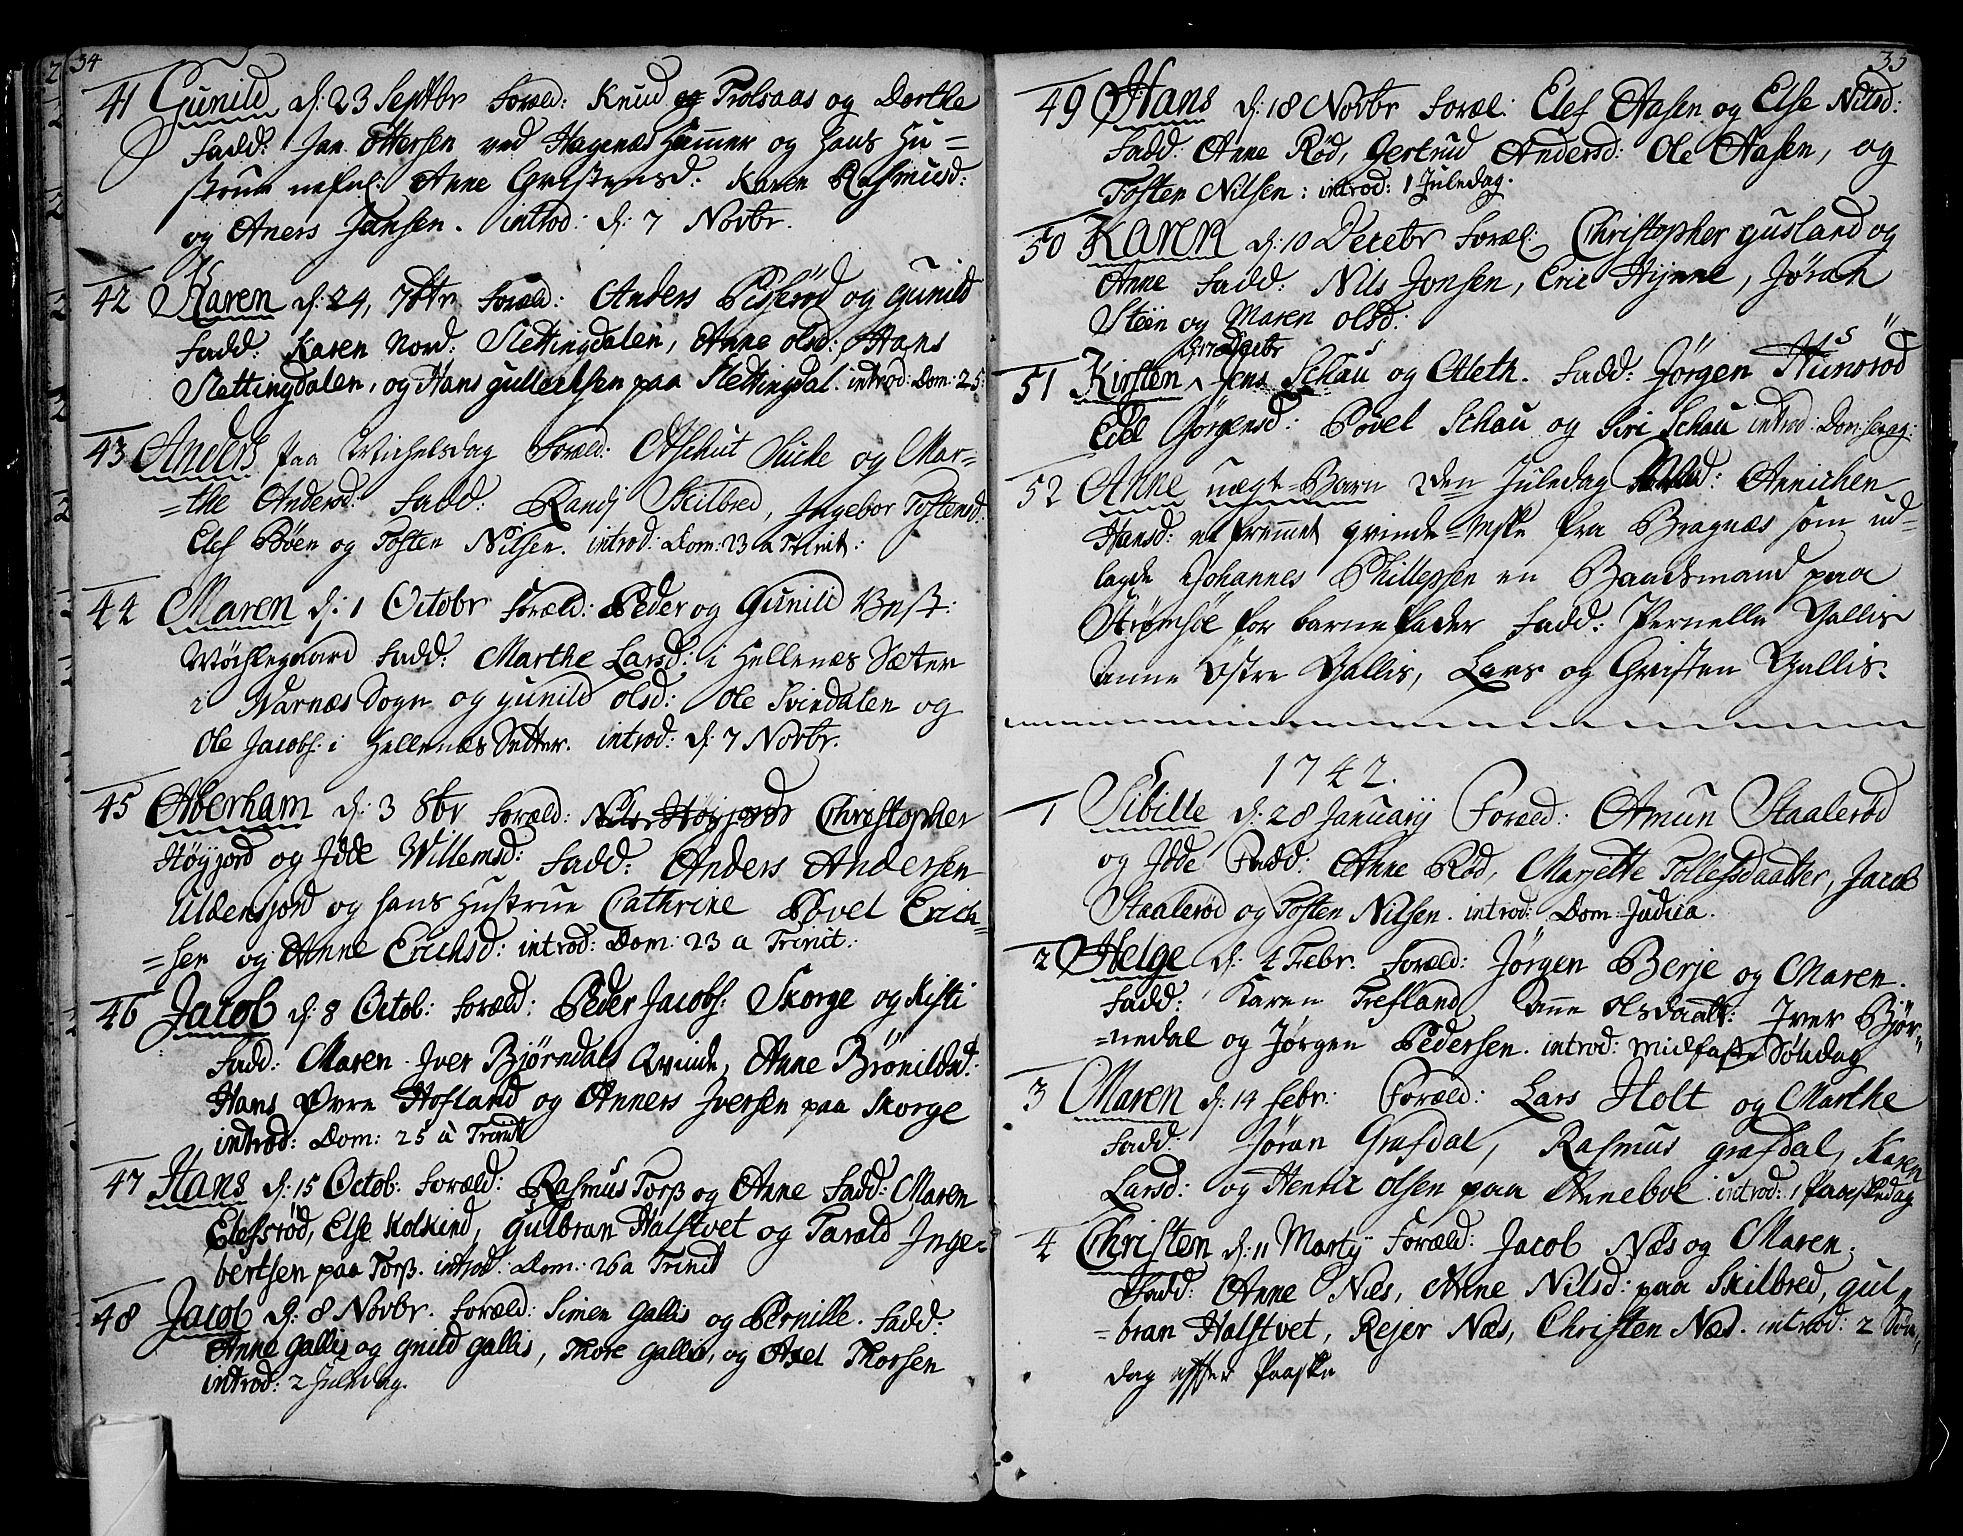 34
41 Gunild d: 23 Septbr Foræld: Knud og Trolsaas og Dorthe
Fadd: Jan Ottersen ved Hagenæs Hammer og hans Hu=
strue nefnl: Anne Christensd: Karen Rasmusd:
og Aners Jansen. introd: d: 7 Novbr.
42 Karen d: 24, 7btr Foræld: Anders Pisserød og Gunild
Fadd: Karen Nord: Slettingdalen, Anne olsd: Hans
Slettingdalen, og Hans gulleclsen paa Slettingdal. introd: Dom: 25:
43 Anders paa Michelsdag Foræld: Afskut Sucke og Mar=
=the Andersd: Fadd: Randj Skilbred, Ingebor Tostensd:
Elef Bøen og Tosten Nilsen. introd: Dom: 23 a Trinit:
44 Maren d: 1 Octobr Foræld: Peder og Gunild
Wøhlegaard Fadd: Marthe Larsd: i Hellenæs Sæter
i Warnæs Sogn og gunild olsd: Ole Svindalen og
Ole Jacobs: i Hellenæs Setter. introd: d: 7 Novbr.
45 Aberham d: 3 8br Foræld: Nils Høijord Christopher
Høyjord og Jøde Willemsd: Fadd: Anders Andersen
Uldensjord og hans Hustrue Cathrine Povel Erich=
=sen og Anne Erichsd: introd: Dom: 23 a Trinit:
46 Jacob d: 8 Octob: Foræld: Peder Jacobs: Skorge og Kisti
Fadd: Maren Iver Bjørndals Qvinde, Anne Brønildsd:
Hans Øvre Hofland og Anners Iversen paa Skorge
introd: Dom: 25 a Trinit
47 Hans d: 15 Octob: Foræld: Rasmus Torp og Anne Fadd: Maren
Elefsrød, Else Kolkind, Gulbran Halstvet og Tarald Inge=
bertsen paa Torp. introd: Dom: 26 a Trinit
48 Jacob d: 8 Novbr. Foræld: Simen Gallis og Pernille. Fadd:
Anne Gallis og gnild Gallis, Thore Gallis, og Axel Thorsen
introd: 2 Juledag.
35
49 Hans d: 18 Novbr Foræl: Elef Aasen og Else Nilsd:
Fadd: Anne Rød, Gertrud Andersd: Ole Aasen, og
Tosten Nilsen: introd: 1 Juledag.
50 Karen d: 10 Decebr Foræl: Christopher gusland og
Anne Fadd: Nils Jonsen, Eric Hynne, Jøran
Steen og Maren olsd:
d: 17 Decbr
51 Kirsten Jens Schau og Aleth. Fadd: Jørgen Hunsrød
Edel Gørgensd: Povel Schau og Siri Schau introd: Dom:
52 Anne uægt=Barn 2den Juledag Foræld: Annichen
Hansd: et fremmet qvinde=Meske fra Bragnæs som ud=
lagde Johannes Phillepsen en Baadsmand paa
Strømsøe for barnefader Fadd: Pernelle Gallis
Anne Østre Gallis, Lars og Christen Gallis.
1742.
1 Sibille d: 28 Januarij Foræld: Amun Staalerød
og Jøde Fadd: Anne Rød, Marjette Tollefsdaatter, Jacob
Staalerød og Tosten Nilsen. introd: Dom Judica.
2 Helge d: 4 Febr. Foræld: Jørgen Berje og Maren.
Fadd: Karen Trefland Anne Olsdaatt: Iver Bjør=
=nedal og Jørgen Pedersen. introd: midfaste Søndag
3 Maren d: 14 febr: Foræld: Lars Holt og Marthe
Fadd: Jøran Grafdal, Rasmus grafdal, Karen
Larsd: og Henric Olsen paa Anneboe introd: 1 Paaskedag
4 Christen d: 11 Martij Foræld: Jacob Næs og Maren.
Fadd: Anne Næs, Anne Nilsd: paa Skilbred, gul=
=bran Halstvet, Rejer Næs, Christen Næs. introd: 2 Søn=
dag efter Paaske